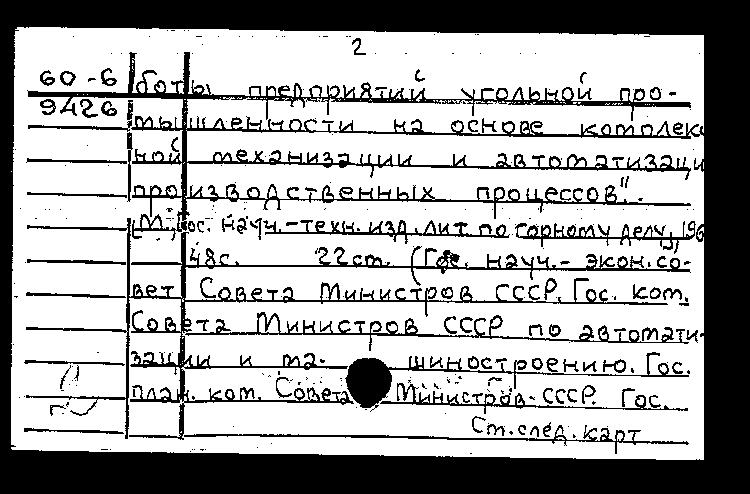 2
60-6 боты предприятий угольной про-
9426 мышленности на основе комплекс
ной механизации и автоматизаци
производственных процессов".
[М., Гос. науч.-техн. изд. лит. по горному делу], 196
48с. 22 cm. (Гос. науч.- экон. со-
вет Совета Министров СССР. Гос. ком.
Совета Министров СССР по автомати-
зации и ма- шиностроению. Гос.
план. ком. Совета Министров СССР. Гос.
См. след. карт